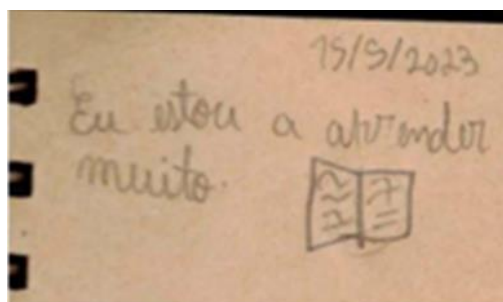 15/5/2023
Eu estou a aprender
muito.